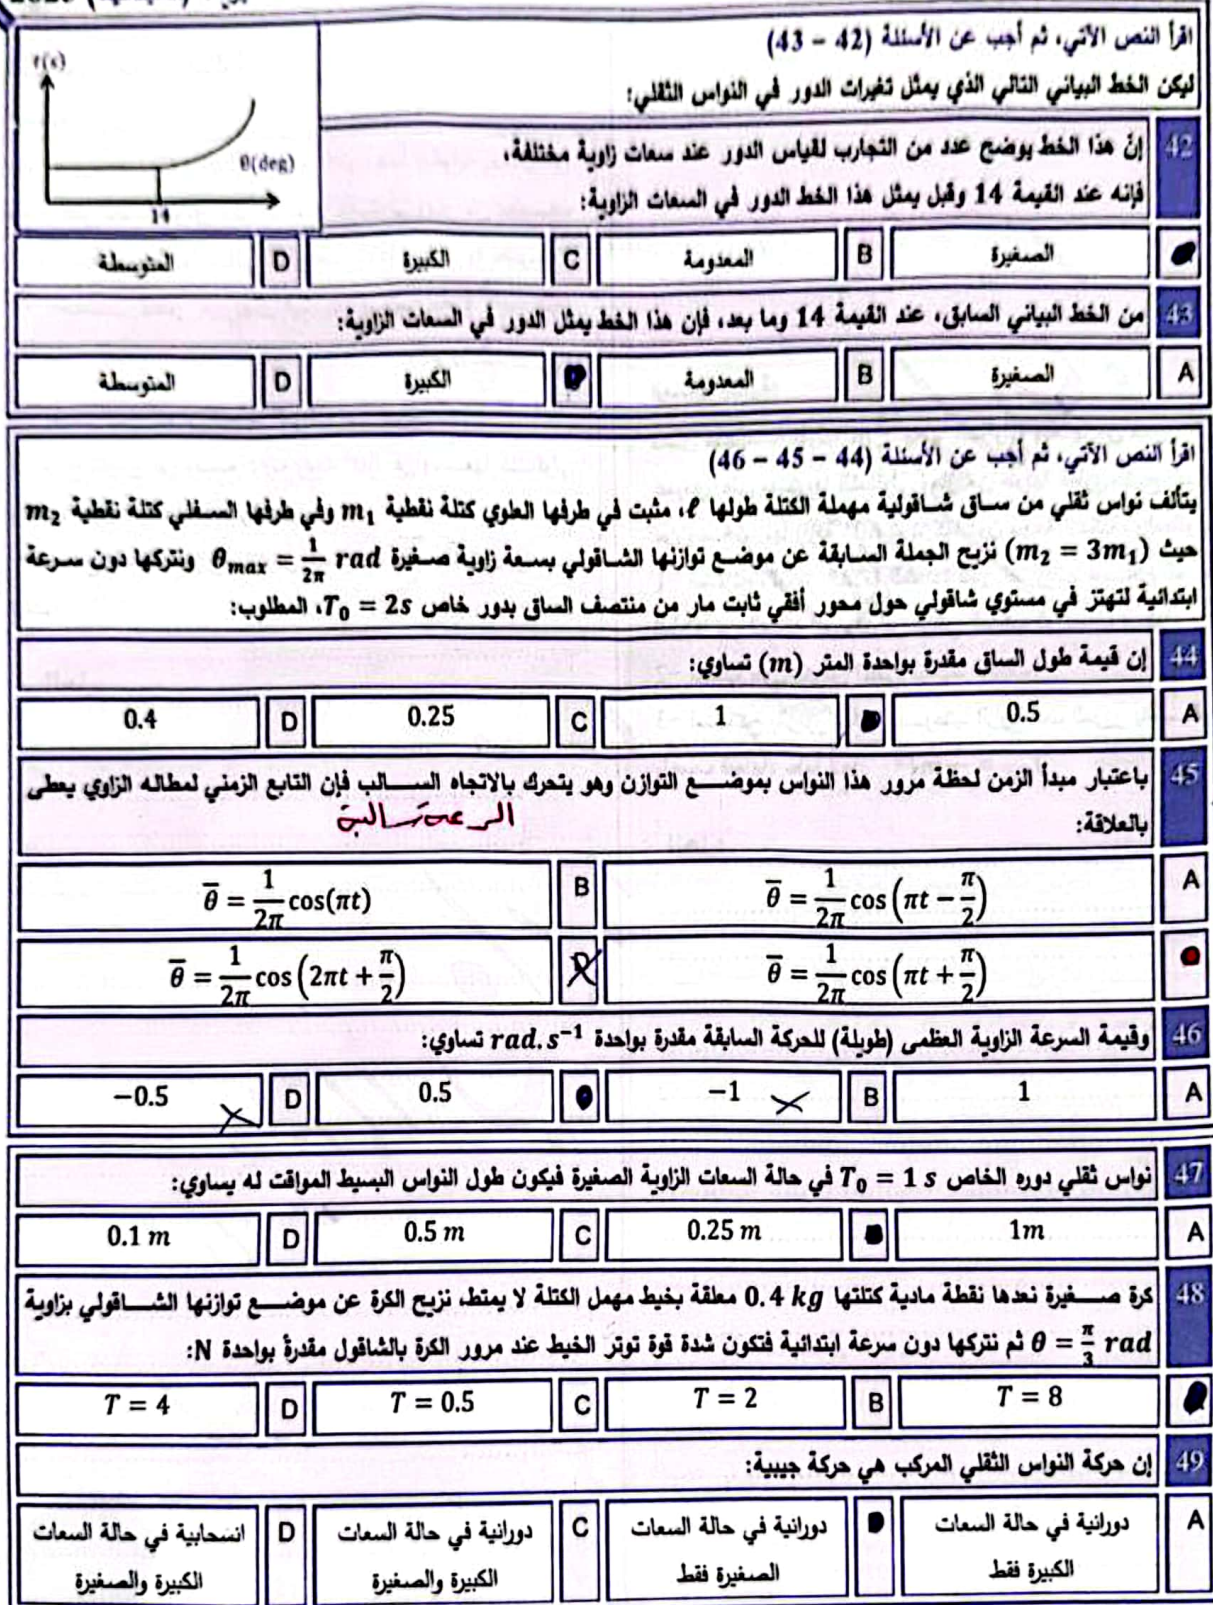 اقرأ النص الآتي، ثم أجب عن الأسئلة (42 – 43)
ليكن الخط البياني التالي الذي يمثل تغيرات الدور في النواس الثقلي:
θ(deg)
14
42 إنّ هذا الخط يوضح عدد من التجارب لقياس الدور عند سعات زاوية مختلفة،
فإنه عند القيمة 14 وقبل يمثل هذا الخط الدور في السعات الزاوية:
الصغيرة B المعدومة C الكبيرة D المتوسطة
43 من الخط البياني السابق، عند القيمة 14 وما بعد، فإن هذا الخط يمثل الدور في السعات الزاوية:
A الصغيرة B المعدومة الكبيرة D المتوسطة
اقرأ النص الآتي، ثم أجب عن الأسئلة (44 – 45 – 46)
يتألف نواس ثقلي من ساق شاقولية مهملة الكتلة طولها ℓ، مثبت في طرفها العلوي كتلة نقطية m₁ وفي طرفها السفلي كتلة نقطية m₂
حيث (m₂ = 3m₁) نزيح الجملة السابقة عن موضع توازنها الشاقولي بسعة زاوية صغيرة θmax = 1/2π rad ونتركها دون سرعة
ابتدائية لتهتز في مستوي شاقولي حول محور أفقي ثابت مار من منتصف الساق بدور خاص T₀ = 2s، المطلوب:
44 إن قيمة طول الساق مقدرة بواحدة المتر (m) تساوي:
A 0.5 1 C 0.25 D 0.4
45 باعتبار مبدأ الزمن لحظة مرور هذا النواس بموضع التوازن وهو يتحرك بالاتجاه السالب فإن التابع الزمني لمطاله الزاوي يعطى
بالعلاقة:
السرعة سالبة
A θ̄ = 1/2π cos(πt − π/2) B θ̄ = 1/2π cos(πt)
θ̄ = 1/2π cos(πt + π/2) D θ̄ = 1/2π cos(2πt + π/2)
46 وقيمة السرعة الزاوية العظمى (طويلة) للحركة السابقة مقدرة بواحدة rad.s⁻¹ تساوي:
A 1 B −1 0.5 D −0.5
47 نواس ثقلي دوره الخاص T₀ = 1 s في حالة السعات الزاوية الصغيرة فيكون طول النواس البسيط المواقت له يساوي:
A 1m 0.25 m C 0.5 m D 0.1 m
48 كرة صغيرة نعدها نقطة مادية كتلتها 0.4 kg معلقة بخيط مهمل الكتلة لا يمتط، نزيح الكرة عن موضع توازنها الشاقولي بزاوية
θ = π/3 rad ثم نتركها دون سرعة ابتدائية فتكون شدة قوة توتر الخيط عند مرور الكرة بالشاقول مقدرةً بواحدة N:
T = 8 B T = 2 C T = 0.5 D T = 4
49 إن حركة النواس الثقلي المركب هي حركة جيبية:
A دورانية في حالة السعات الكبيرة فقط دورانية في حالة السعات الصغيرة فقط C دورانية في حالة السعات الكبيرة والصغيرة D انسحابية في حالة السعات الكبيرة والصغيرة